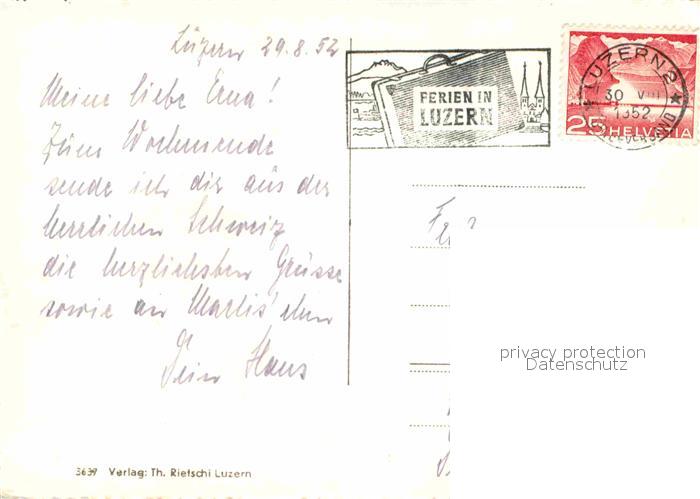 Luzern 29.8.52
Meine liebe Erna!
Zum Wochenende
sende ich dir aus der
herrlichen Schweiz
die herzlichsten Grüsse
sowie an
Dein Hans
3637 Verlag: Th. Rietschi Luzern
FERIEN IN
LUZERN
LUZERN 2
30 VIII
1952
25 HELVETIA
privacy protection
Datenschutz